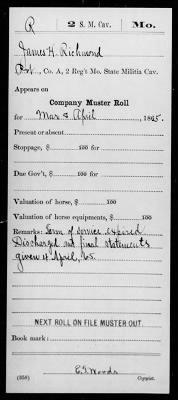 R 2 S. M. Cav. Mo.
James H. Richmond
Pvt., Co. A, 2 Reg't Mo. State Militia Cav.
Appears on
Company Muster Roll
for Mar & April, 1865.
Present or absent
Stoppage, $ 100 for
Due Gov't, $ 100 for
Valuation of horse, $ 100
Valuation of horse equipments, $ 100
Remarks: Term of service expired
Discharged and final statements
given 4 April, 65.
NEXT ROLL ON FILE MUSTER OUT.
Book mark:
E. T. Woods
(358) Copyist.